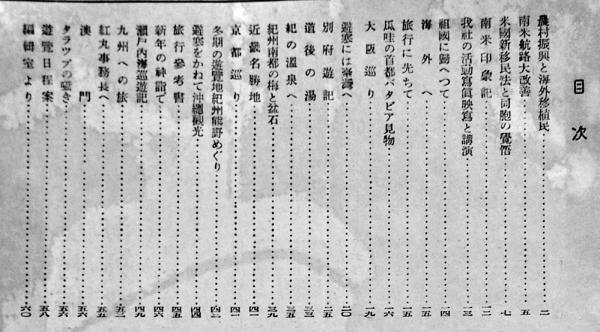 目次
農村振興と海外移植民……二
南米航路大改善……五
米國新移民法と同胞の覺悟……七
南米印象記……一二
我社の活動寫眞映寫と講演……一三
祖國に歸へつて……一四
海外へ……一五
旅行に先ちて……一五
瓜哇の首都バタビア見物……一六
大阪巡り……一九
避寒には臺灣へ……二〇
別府遊記……二五
道後の湯……三三
紀の溫泉へ……三五
紀州南部の梅と盆石……三九
近畿名勝地……四一
京都巡り……四一
冬期の遊覽地紀州熊野めぐり……四二
避寒をかねて沖繩觀光……四四
旅行參考書……四五
新年の神詣で……四六
瀨戶內海巡遊記……四九
九州への旅……五二
紅丸事務長へ……五五
澳門……五六
タラップの囁き……五六
遊覽日程案……五八
編輯室より……六〇